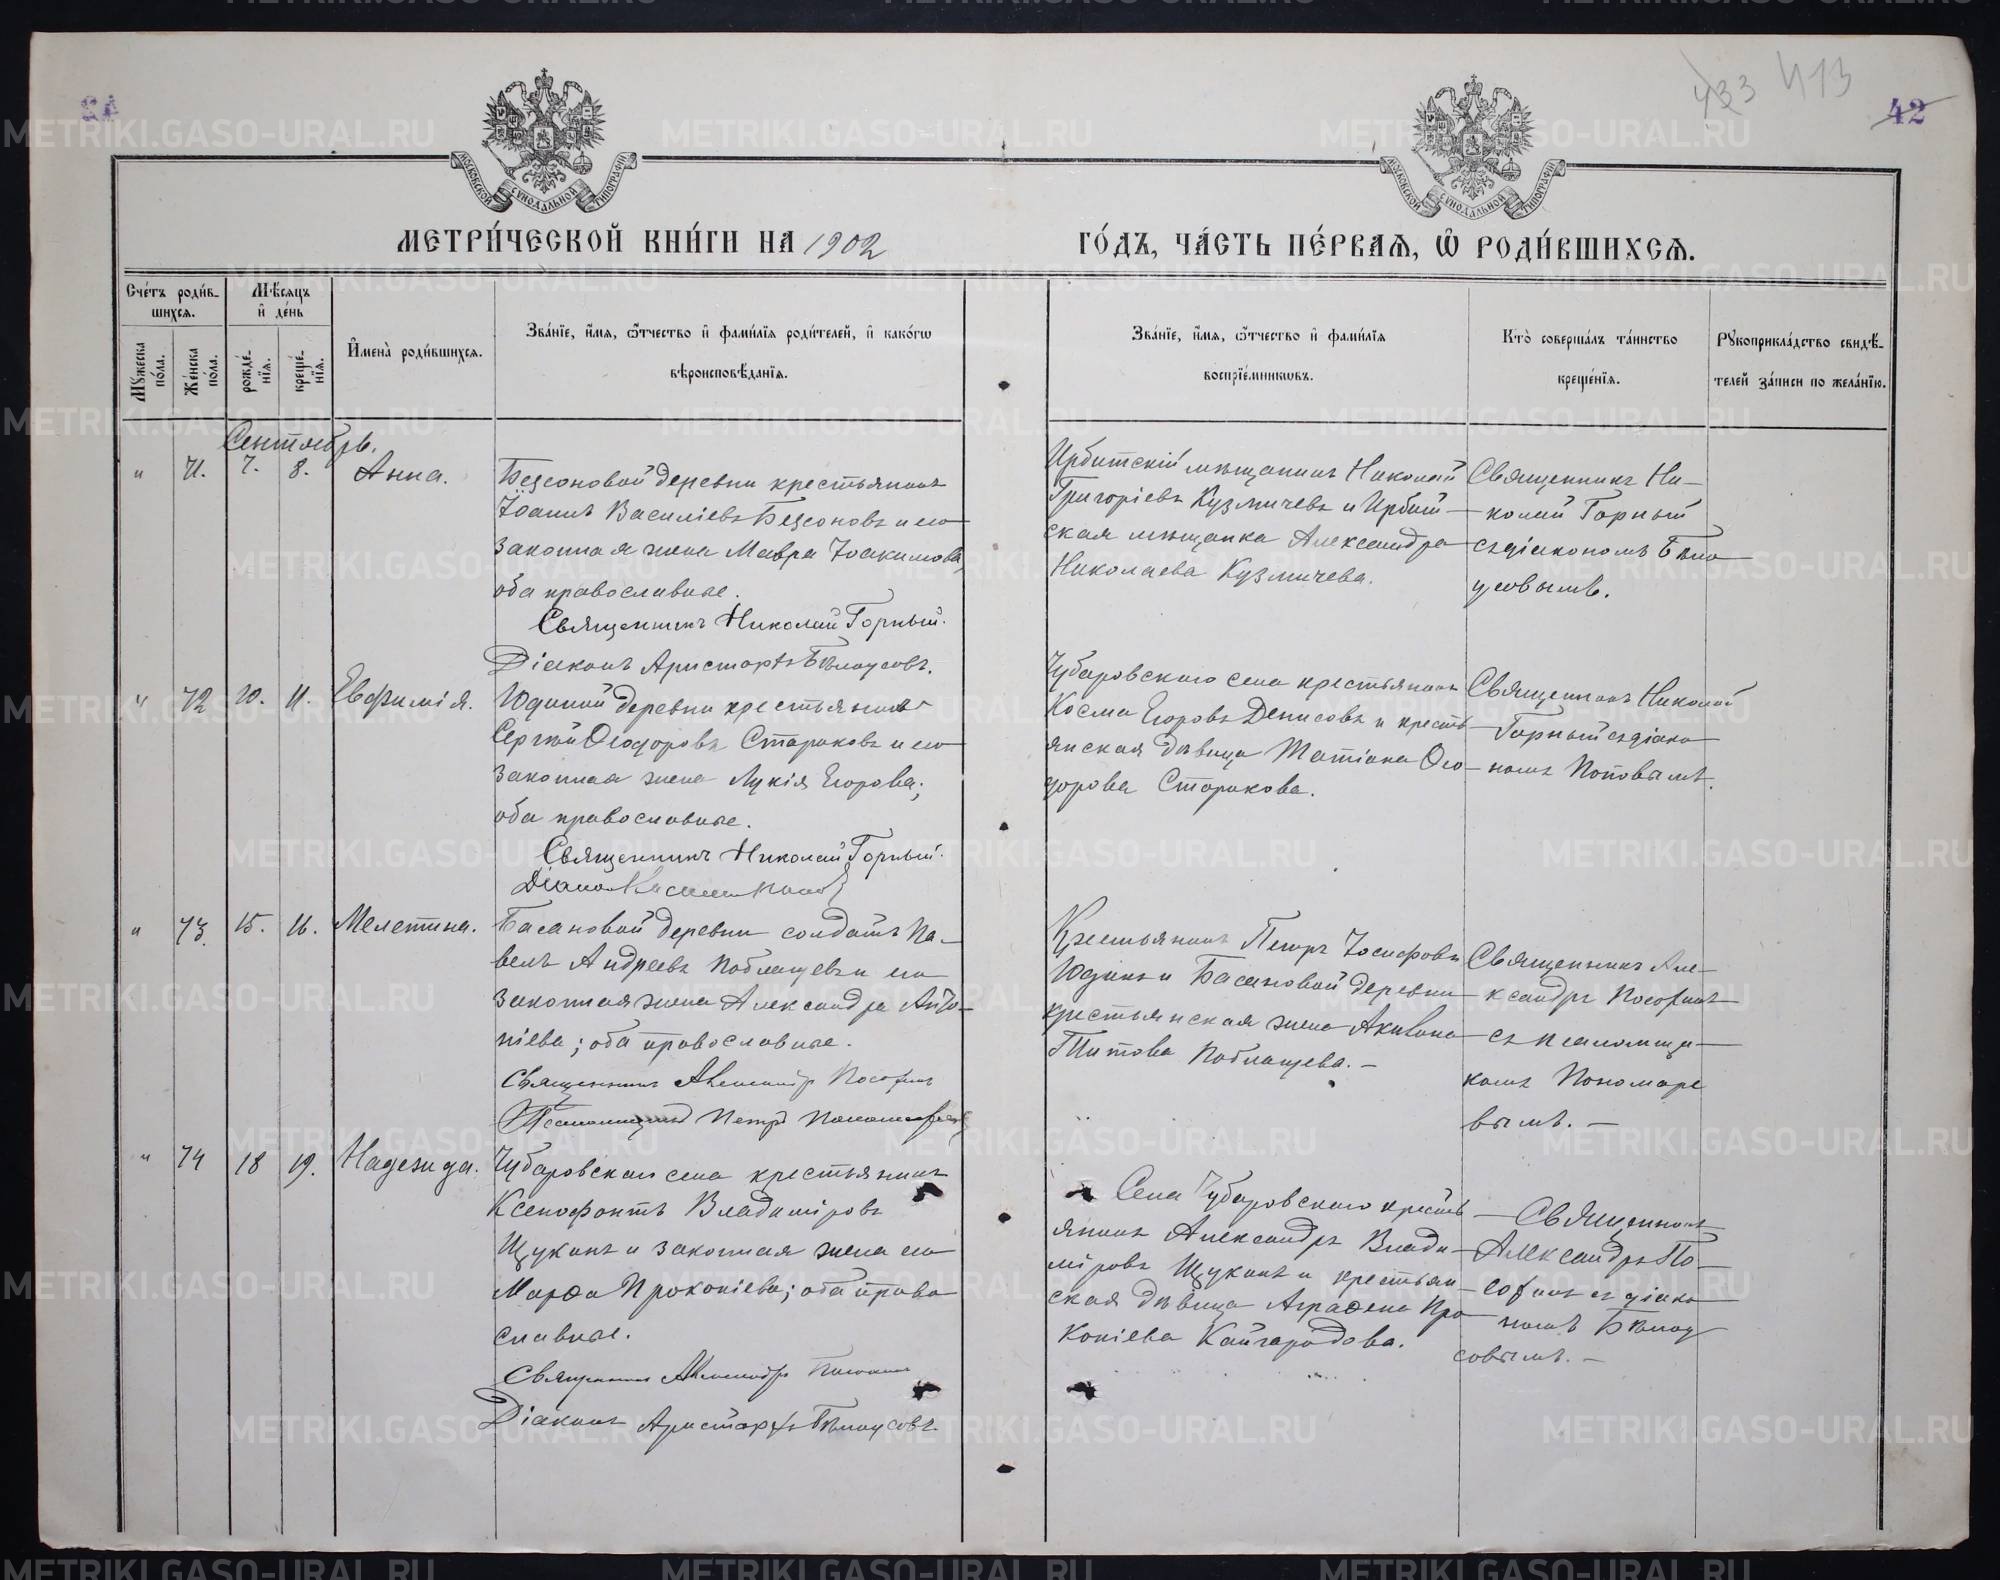 433 413
42
МОСКОВСКОЙ СѴНОДАЛЬНОЙ ТИПОГРАФІИ
МОСКОВСКОЙ СѴНОДАЛЬНОЙ ТИПОГРАФІИ
МЕТРИ́ЧЕСКОЙ КНИ́ГИ НА 1902
ГО́ДЪ, ЧА́СТЬ ПЕ́РВАѦ, Ѿ РОДИ́ВШИХСѦ.
Сче́тъ роди́в-
шихсѧ.
Мѣ́сѧцъ
и҆ де́нь
Мꙋ́жеска
по́ла.
Же́нска
по́ла.
рожде́-
нїѧ.
креще́-
нїѧ.
И҆мена̀ роди́вшихсѧ.
Зва́нїе, и҆́мѧ, ѻ҆́тчество и҆ фами́лїѧ роди́телей, и҆ како́гѡ
вѣроисповѣ́данїѧ.
Зва́нїе, и҆́мѧ, ѻ҆́тчество и҆ фами́лїѧ
воспрїе́мникѡвъ.
Кто̀ соверша́лъ та́инство
креще́нїѧ.
Рꙋкоприкла́дство свидѣ́-
телей за́писи по жела́нїю.
Сентябрь.
" 71. 7. 8. Анна.
Безсоновой деревни крестьянинъ
Іоаннъ Василіевъ Безсоновъ и его
законная жена Мавра Іоакимова,
оба православные.
Священникъ Николай Горный.
Діаконъ Аристархъ Бѣлоусовъ.
Ирбитскій мѣщанинъ Николай
Григоріевъ Кузмичевъ и Ирбит-
ская мѣщанка Александра
Николаева Кузмичева.
Священникъ Ни-
колай Горный
съ діакономъ Бѣло
усовымъ.
" 72 10. 11. Евфимія.
Юдиной деревни крестьянинъ
Сергій Ѳеодоровъ Стариковъ и его
законная жена Лукія Егорова;
оба православные.
Священникъ Николай Горный.
Діаконъ Попов
Чубаровскаго села крестьянинъ
Косма Егоровъ Денисовъ и кресть
янская дѣвица Татіана Ѳео-
дорова Старикова.
Священникъ Николай
Горный съ діако
номъ Поповымъ.
" 73. 15. 16. Мелетина.
Басановой деревни солдатъ Па-
велъ Андреевъ Поблащевъ и его
законная жена Александра Анто-
ніева; оба православные.
Священникъ Александр
Псаломщикъ Петръ Пономарев
Крестьянинъ Петръ Іосифовъ
Юдинъ и Басановой деревни
крестьянская жена Акилина
Титова Поблащева. -
Священникъ Але-
ксандръ
съ псаломщи-
комъ Пономаре
вымъ. -
" 74 18 19. Надежда.
Чубаровскаго села крестьянинъ
Ксенофонтъ Владиміровъ
Щукинъ и законная жена его
Марѳа Прокопіева; оба право
славные.
Священникъ Александръ
Діаконъ Аристархъ Бѣлоусовъ.
Села Чубаровскаго кресть
янинъ Александръ Влади-
міровъ Щукинъ и крестьян-
ская дѣвица Аграѳена Про
копіева Кайгародова.
- Священникъ
Александръ
съ діако
номъ Бѣлоу
совымъ. -
METRIKI.GASO-URAL.RU